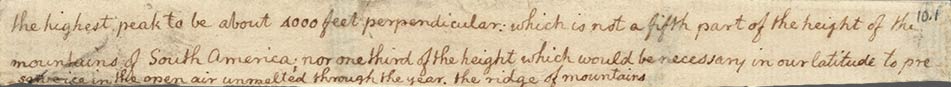 the highest peak to be about 4000 feet perpendicular. which is not a fifth part of the height of the
10.1
mountains of South America, nor one third of the height which would be necessary in our latitude to pre
serve ice in the open air unmelted through the year. the ridge of mountains